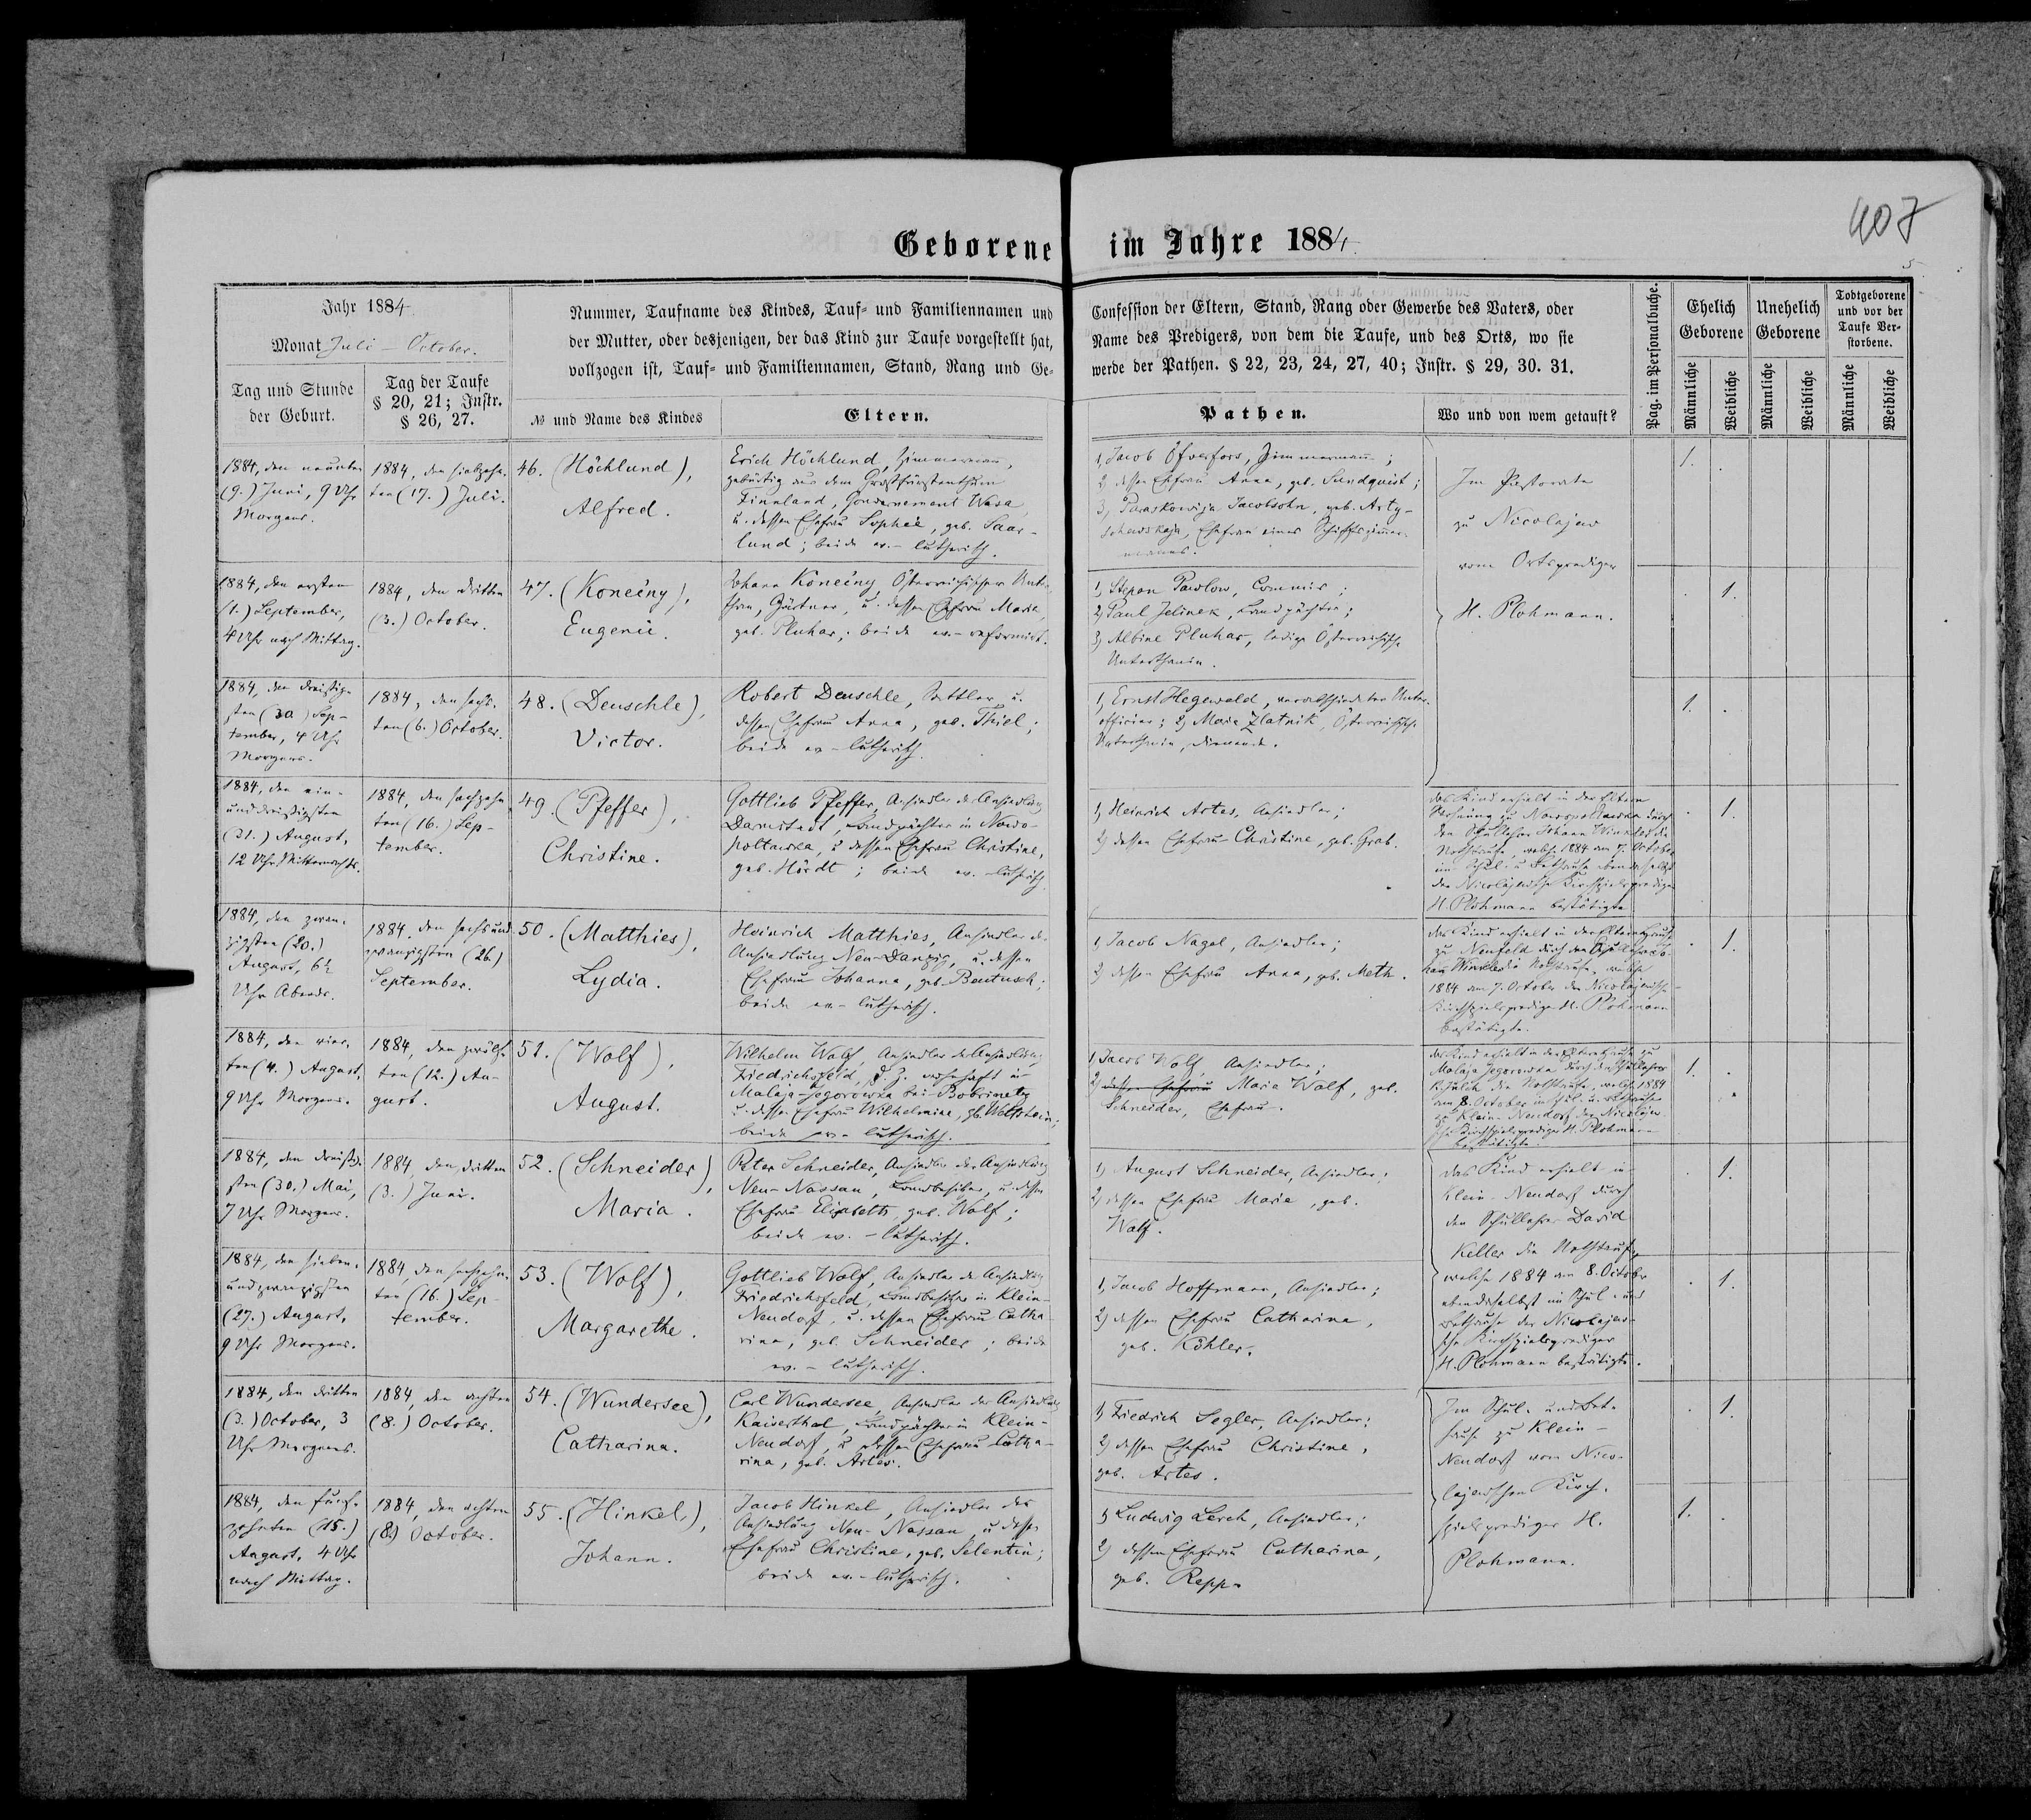 407
5.
Geborene im Jahre 1884.
Jahr 1884.
Monat Juli – October.
Tag und Stunde
der Geburt.
Tag der Taufe
§ 20, 21; Instr.
§ 26, 27.
Nummer, Taufname des Kindes, Tauf- und Familiennamen und
der Mutter, oder desjenigen, der das Kind zur Taufe vorgestellt hat,
vollzogen ist, Tauf- und Familiennamen, Stand, Rang und Ge-
№ und Name des Kindes
Eltern.
Confession der Eltern, Stand, Rang oder Gewerbe des Vaters, oder
Name des Predigers, von dem die Taufe, und des Orts, wo sie
werde der Pathen. § 22, 23, 24, 27, 40; Instr. § 29, 30. 31.
Pathen.
Wo und von wem getauft?
Pag. im Personalbuche.
Ehelich
Geborene
Unehelich
Geborene
Todtgeborene
und vor der
Taufe Ver-
storbene.
Männliche
Weibliche
Männliche
Weibliche
Männliche
Weibliche
1884, den neunten
(9.) Juni, 9 Uhr
Morgens.
1884, den siebzehn-
ten (17.) Juli.
46. (Höchlund),
Alfred.
Erich Höchlund, Zimmermann,
gebürtig aus dem Großfürstenthum
Finnland, Gouvernement Wasa,
u. dessen Ehefrau Sophie, geb. Saar-
lund; beide ev.-lutherisch.
1, Jacob Öfverfors, Zimmermann;
2, dessen Ehefrau Anna, geb. Sundquist;
3, Paraskowija Jacobsohn, geb. Arty-
schewskaja, Ehefrau eines Schiffszimmer-
mannes.
Im Pastorate
zu Nicolajew
vom Ortsprediger
H. Plohmann.
1.
1884, den ersten
(1.) September,
4 Uhr nach Mittag.
1884, den dritten
(3.) October.
47. (Konečny),
Eugenie.
Johann Konečny Österreichischer Unter-
than, Gärtner, u. dessen Ehefrau Marie,
geb. Pluhar; beide ev.-reformirt.
1, Stepan Pawlow, Commis;
2, Paul Jelinek, Landpächter;
3, Albine Pluhar, ledige Österreichische
Unterthanin.
1.
1884, den dreißig-
sten (30) Sep-
tember, 4 Uhr
Morgens.
1884, den sechs-
ten (6.) October.
48. (Deuschle),
Victor.
Robert Deuschle, Sattler u.
dessen Ehefrau Anna, geb. Thiel;
beide ev-lutherisch.
1, Ernst Hegewald, verabschiedeter Unter-
officier; 2, Marie Zlatnik, Österreichische
Unterthanin, dienende.
1.
1884, den ein-
unddreißigsten
(31.) August,
12 Uhr Mitternachts.
1884, den sechzehn-
ten (16.) Sep-
tember.
49. (Pfeffer),
Christine.
Gottlieb Pfeffer, Ansiedler der Ansiedlung
Darmstadt, Landpächter in Nowo-
poltawka, u dessen Ehefrau Christine,
geb. Hördt; beide ev.-lutherisch
1, Heinrich Artes, Ansiedler;
2, dessen Ehefrau Christine, geb. Grab.
das Kind erhielt in der Eltern
Wohnung zu Nowopoltawka durch
den Schullehrer Johann Winkler die
Nothtaufe, welche 1884 am 7. October
im Schul- u Bethause ebendaselbst
der Nicolajewsche Kirchspielsprediger
H. Plohmann bestätigte.
1.
1884, den zwan-
zigsten (20.)
August, 6½
Uhr Abends.
1884, den sechsund-
zwanzigsten (26.)
September.
50. (Matthies),
Lydia.
Heinrich Matthies, Ansiedler der
Ansiedlung Neu-Danzig, u. dessen
Ehefrau Johanna, geb. Bautusch;
beide ev-lutherisch.
1, Jacob Nagel, Ansiedler;
2, dessen Ehefrau Anna, geb. Meth.
das Kind erhielt in der Elternhause
zu Neufeld durch den Schullehrer Jo-
hann Winkler die Nothtaufe, welche
1884 am 7. October der Nicolajewsche
Kirchspielsprediger H. Plohmann
bestätigte.
1.
1884, den vier-
ten (4.) August,
9 Uhr Morgens.
1884, den zwölf-
ten (12.) Au-
gust.
51. (Wolf),
August.
Wilhelm Wolf, Ansiedler der Ansiedlung
Friedrichsfeld, d. Z. wohnhaft in
Malaja-Jegorowka bei Bobrinetz
u. dessen Ehefrau Wilhelmine, geb. Wolfshein;
beide ev-lutherisch.
1, Jacob Wolf, Ansiedler;
2, dessen Ehefrau Maria Wolf, geb.
Schneider, Ehefrau.
das Kind erhielt in der Eltern Hause zu
Malaja Jegorowka durch den Schullehrer
die Nothtaufe, welche 1884
am 8. October im Schul- u. Bethause
zu Klein-Neudorf der Nicolajew-
sche Kirchspielsprediger H. Plohmann
bestätigte.
1.
1884, den dreißig-
sten (30.) Mai,
7 Uhr Morgens.
1884, den dritten
(3.) Juni.
52. (Schneider),
Maria.
Peter Schneider, Ansiedler der Ansiedlung
Neu-Nassau, Landbesitzer, u. dessen
Ehefrau Elisabeth, geb. Wolf;
beide ev.-lutherisch.
1, August Schneider, Ansiedler;
2, dessen Ehefrau Marie, geb.
Wolf.
das Kind erhielt in
Klein-Neudorf durch
den Schullehrer David
Keller die Nothtaufe,
welche 1884 am 8. October
ebendaselbst im Schul- und
Bethause der Nicolajew-
sche Kirchspielsprediger
H. Plohmann bestätigte.
1.
1884, den sieben-
undzwanzigsten
(27.) August,
9 Uhr Morgens.
1884, den sechzehn-
ten (16.) Sep-
tember.
53. (Wolf),
Margarethe.
Gottlieb Wolf, Ansiedler der Ansiedlung
Friedrichsfeld, Landbesitzer in Klein-
Neudorf, u. dessen Ehefrau Catha-
rina, geb. Schneider; beide
ev.-lutherisch.
1, Jacob Hoffmann, Ansiedler;
2, dessen Ehefrau Catharina,
geb. Köhler.
1.
1884, den dritten
(3.) October, 3
Uhr Morgens.
1884, den achten
(8.) October.
54. (Wundersee),
Catharina.
Carl Wundersee, Ansiedler der Ansiedlung
Kaiserthal, Landpächter in Klein-
Neudorf, u dessen Ehefrau Catha-
rina, geb. Artes.
1, Friedrich Segler, Ansiedler;
2, dessen Ehefrau Christine,
geb. Artes.
Im Schul- und Bet-
hause zu Klein-
Neudorf vom Nico-
lajewschen Kirch-
spielsprediger H.
Plohmann.
1.
1884, den fünf-
zehnten (15.)
August, 4 Uhr
nach Mittag.
1884, den achten
(8.) October.
55. (Hinkel),
Johann.
Jacob Hinkel, Ansiedler der
Ansiedlung Neu-Nassau, u dessen
Ehefrau Christine, geb. Selentin;
beide ev.-lutherisch.
1, Ludwig Lerch, Ansiedler;
2, dessen Ehefrau Catharina,
geb. Repp.
1.